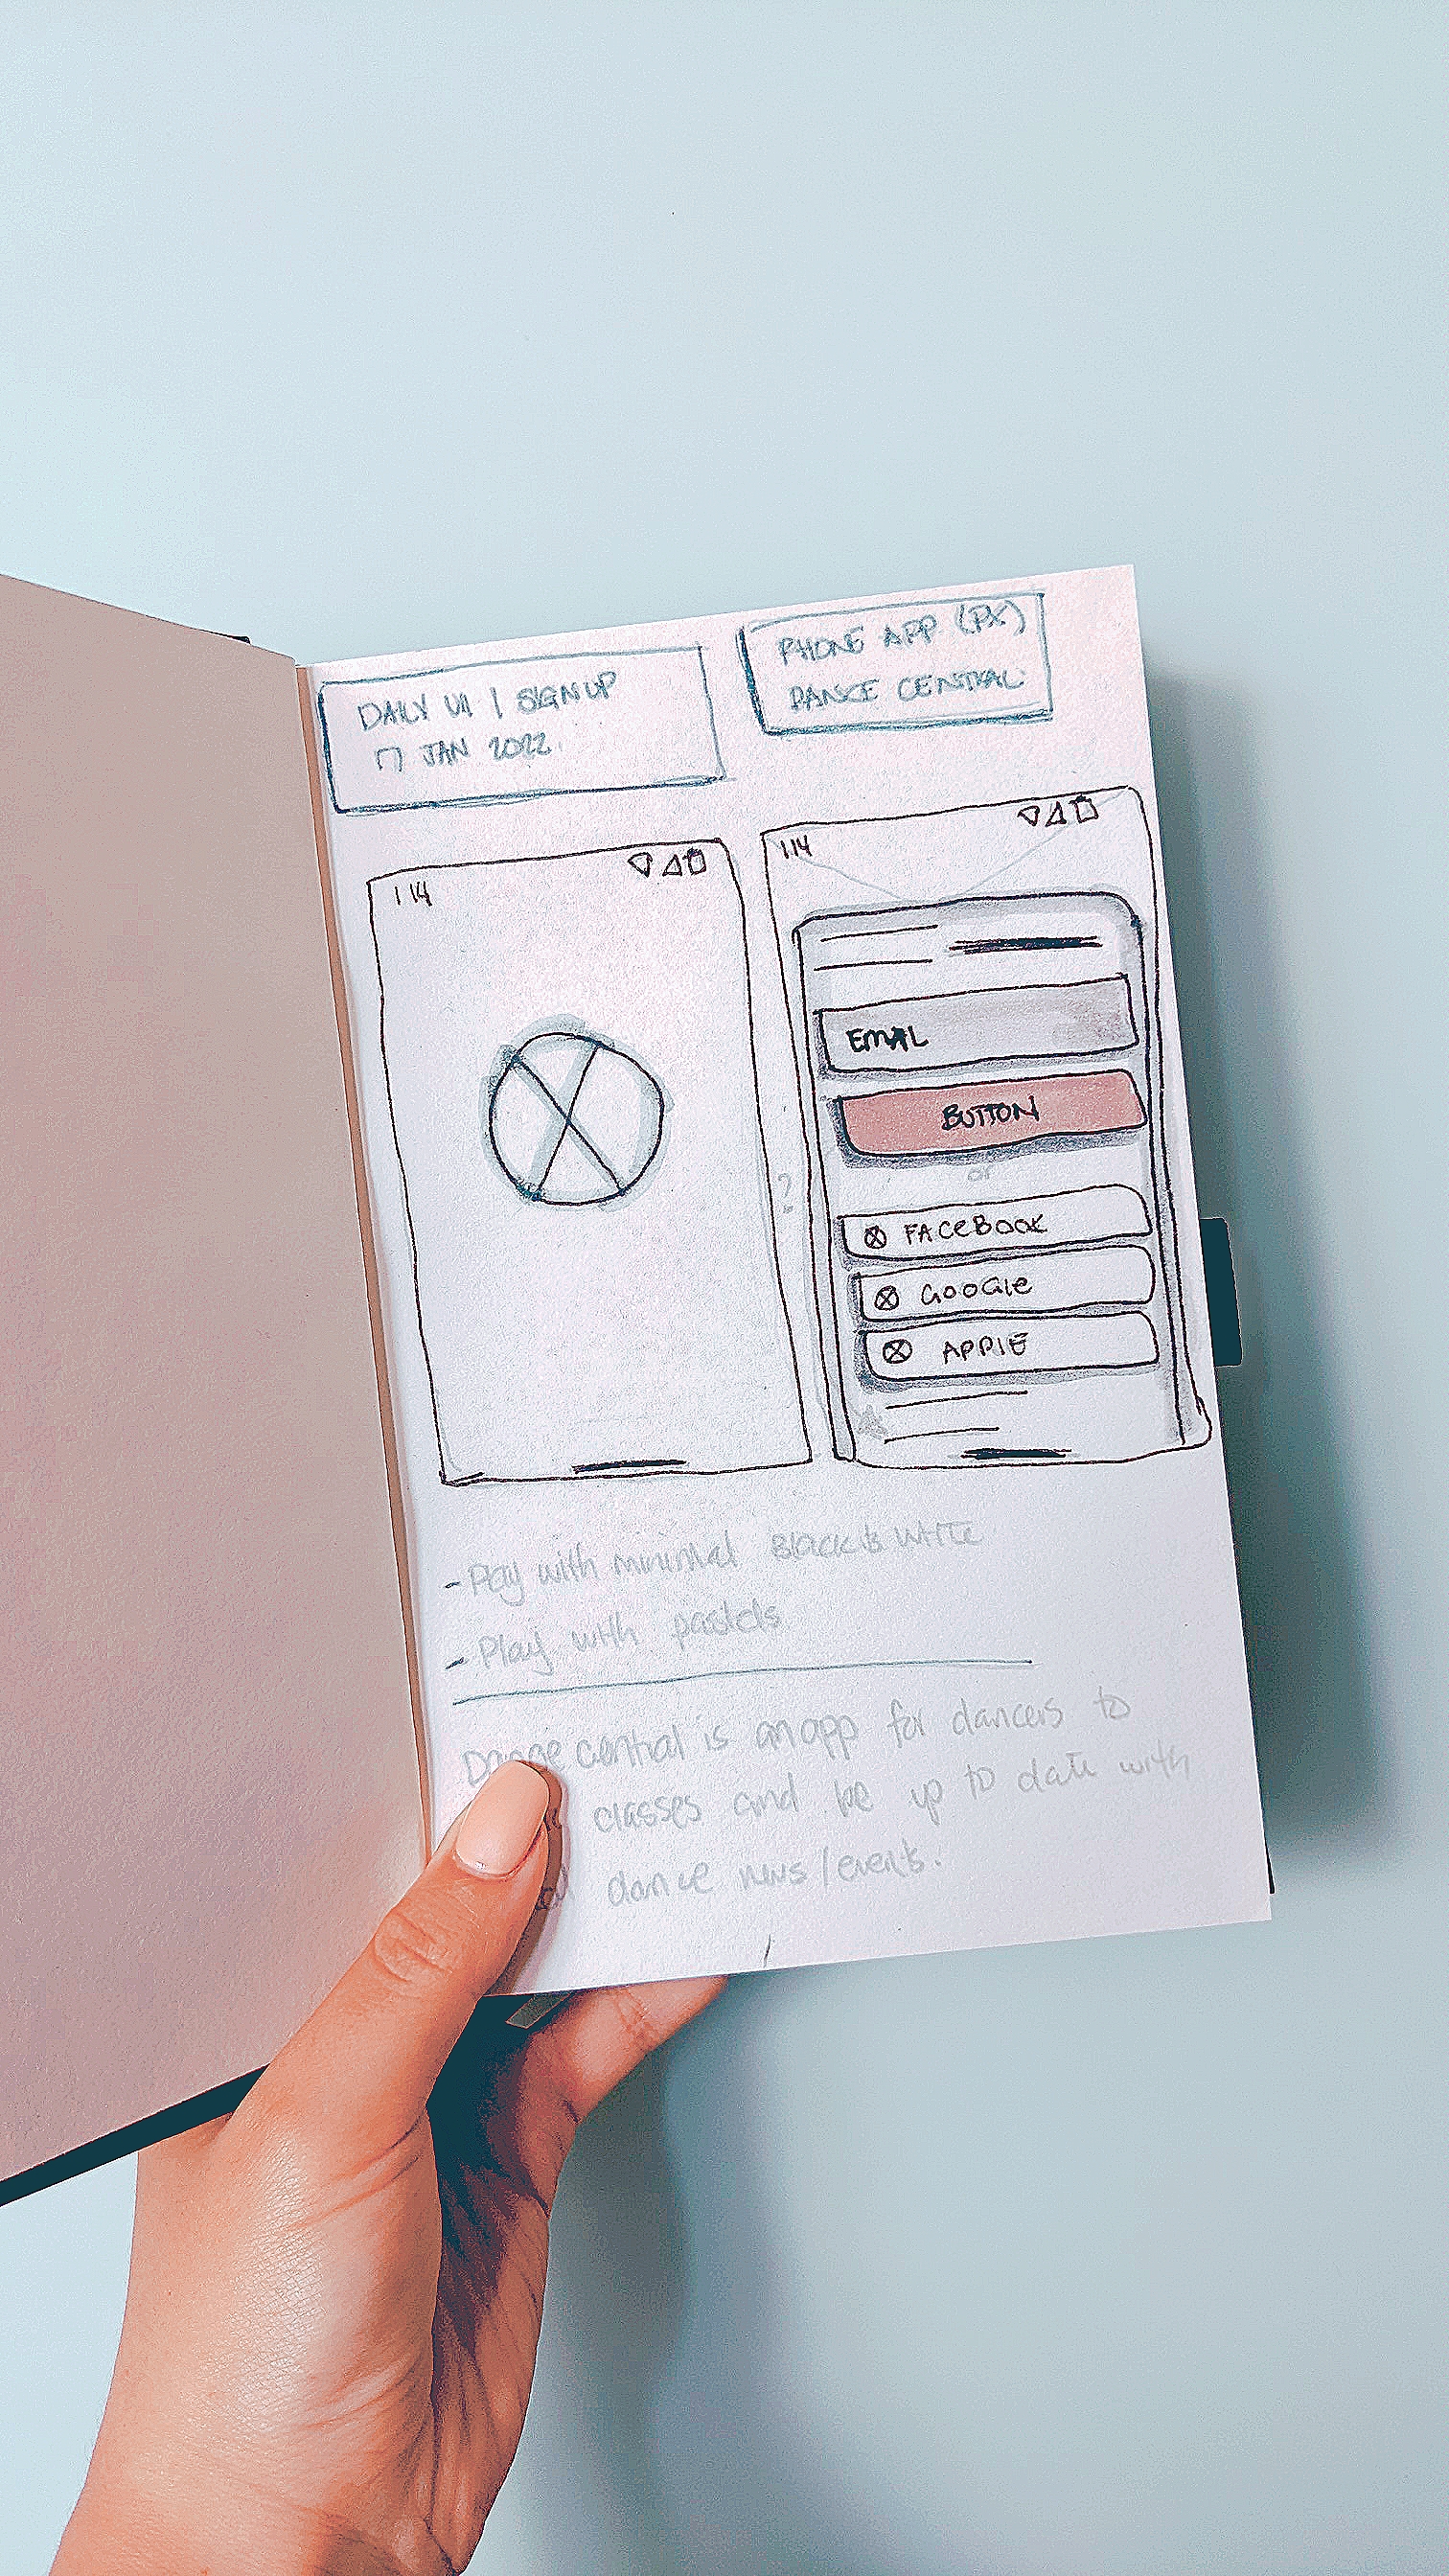 DAILY UI | SIGN UP
17 JAN 2022
PHONE APP (PX)
DANCE CENTRAL
1:14
1:14
EMAIL
BUTTON
or
FACEBOOK
GOOGLE
APPLE
?
- Play with minimal Black & White
- Play with pastels
Dance central is an app for dancers to
classes and be up to date with
dance news/events.